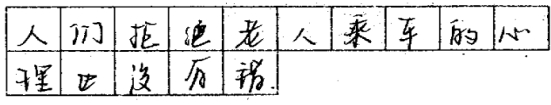 人们拒绝老人乘车的心
理也没有错.